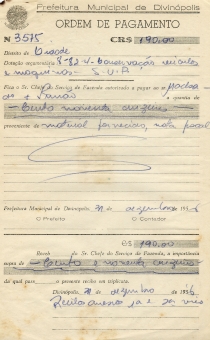 Prefeitura Municipal de Divinópolis
ORDEM DE PAGAMENTO
N 3575 CR$ 190,00
Distrito de Cidade
Dotação orçamentária 8-82-4- Conservação veículos
e maquinas - S.V.P.
Fica o Sr. Chefe do Serviço de Fazenda autorizado a pagar ao sr.
a quantia de
Cento noventa cruzeiros
proveniente de material fornecido, nota fiscal
Prefeitura Municipal de Divinópolis, dezembro 195
O Prefeito O Contador
CR$ 190,00
Recebi do Sr. Chefe do Serviço de Fazenda, a importância
supra de Cento e noventa cruzeiros
da qual passo o presente recibo em triplicata.
Divinópolis, dezembro 195